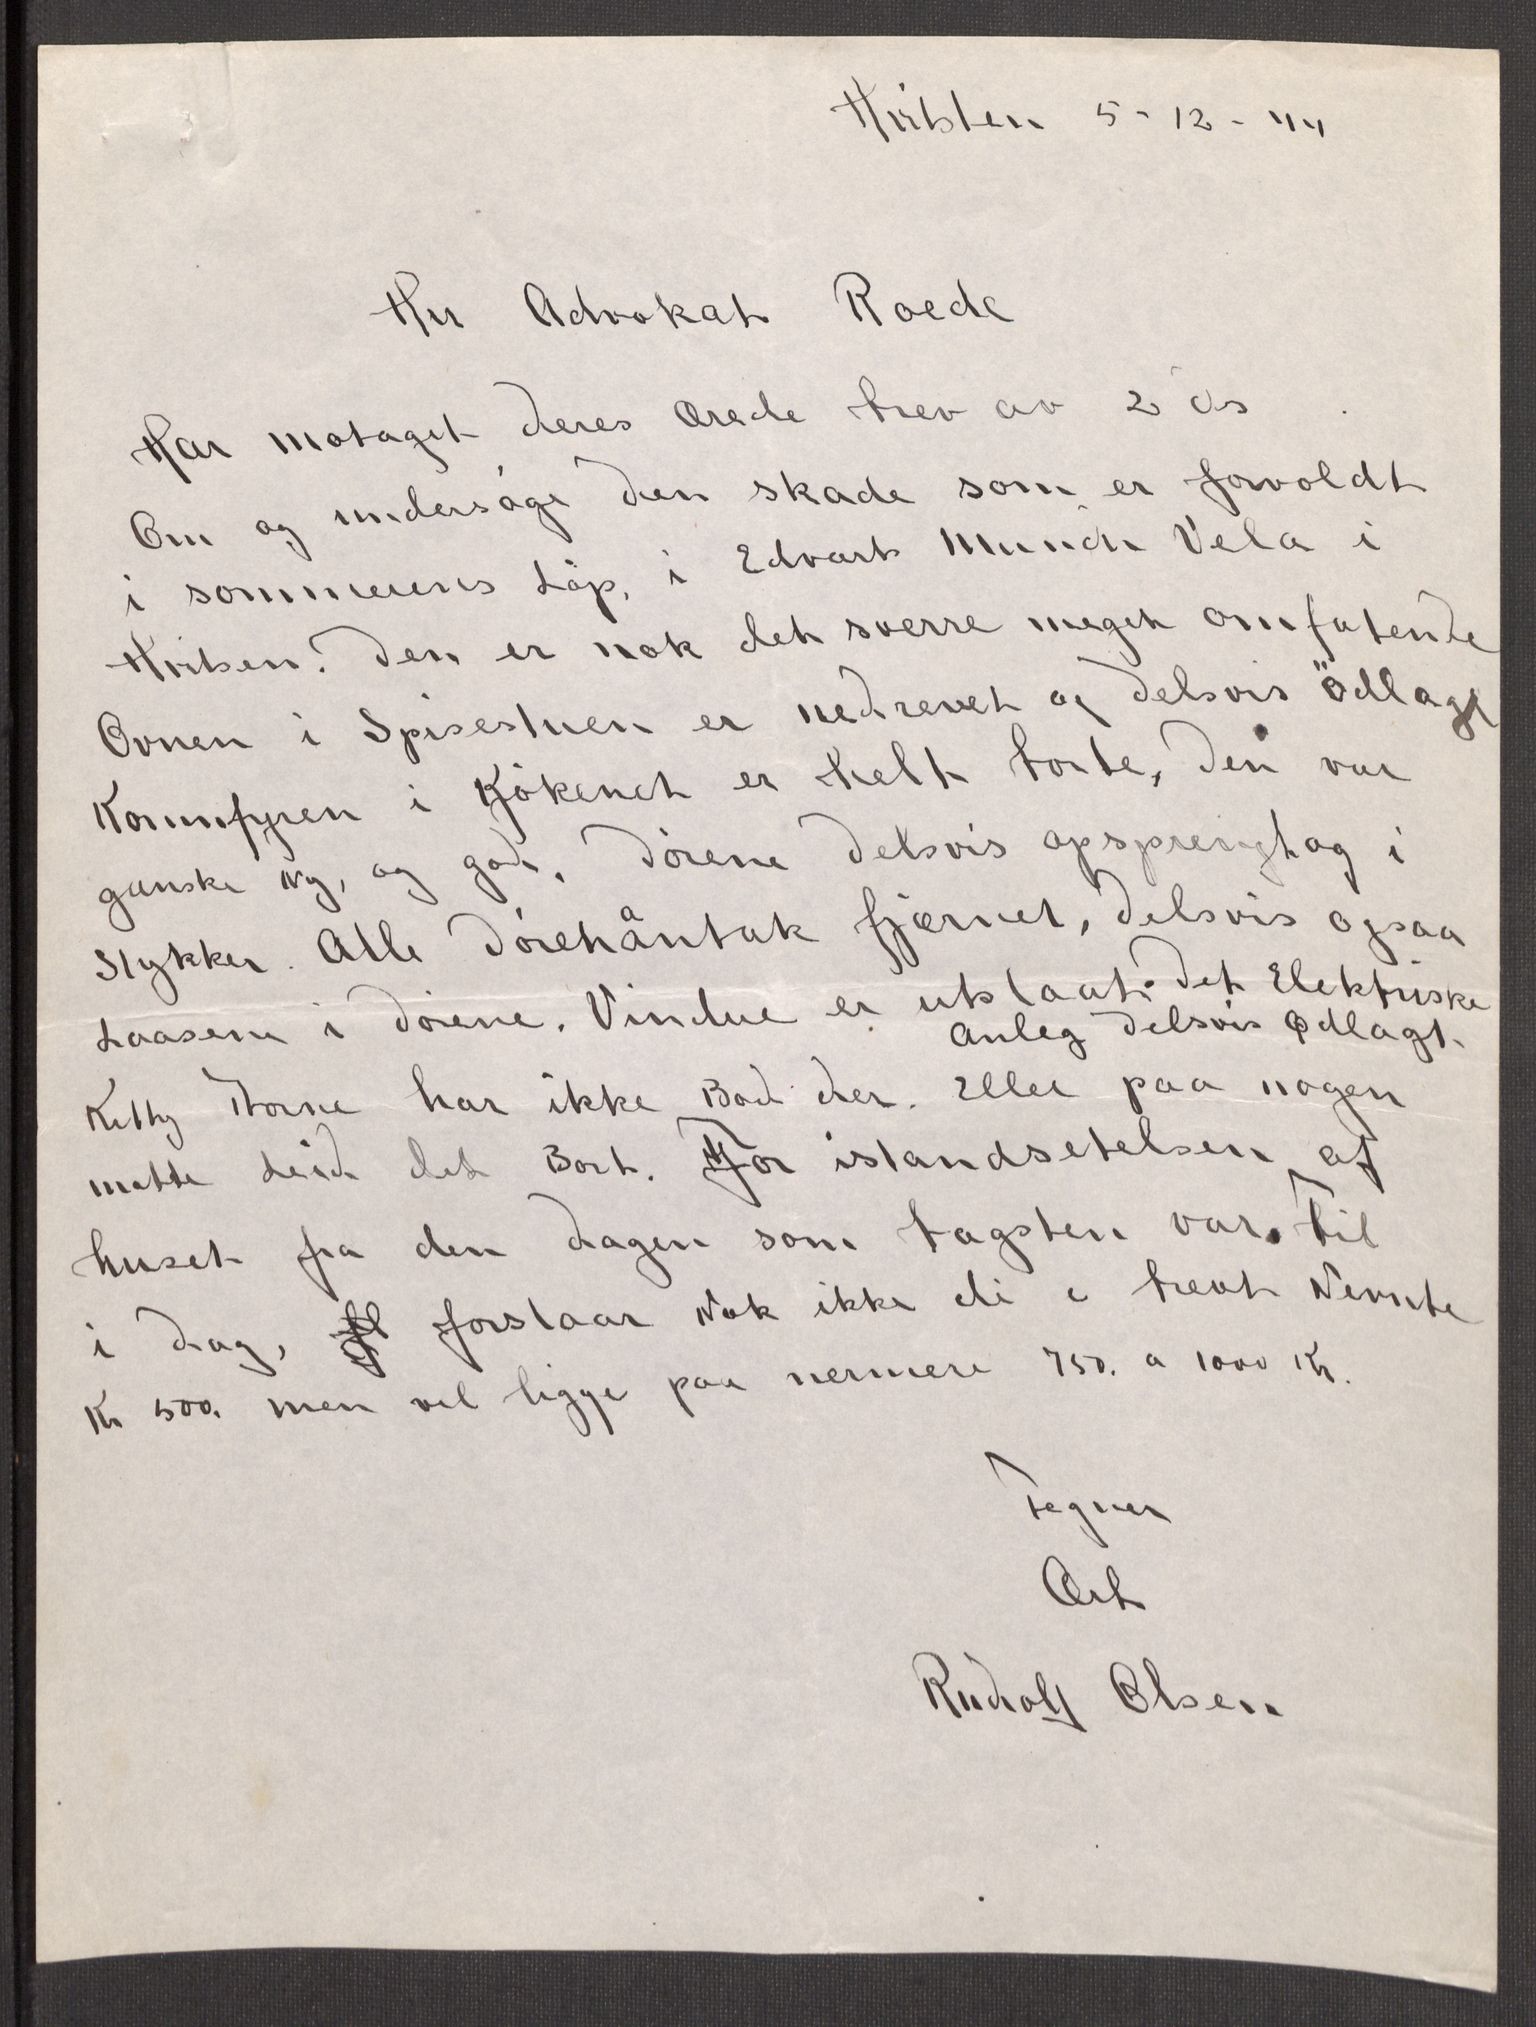 Hvitsten 5-12-44
Her Advokat Roede
Har motaget deres Ærede brev av 2 ds
Om og undersøge den skade som er forvoldt
i sommerens Løp, i Edvart Munch Vela i
Hvitsen. den er nok det sverre meget omfatende
Ovnen i Spisestuen er nedrevet og delsvis Ödlagt
Kommfyren i Kjøkenet er helt borte, den var
ganske Ny, og god. dørene delsvis opsprengt og i
stykker. Alle dørehåntak fjærnet, delsvis ogsaa
Laasene i dørene. Vindue er utslaat. det Elektriske
Anleg delsvis Ødlagt.
Ketty Thorne har ikke Bod der. Eller paa nogen
motte Leid det Bort. For istandsetelsen af
huset fra den dagen som tagsten var. Til
i dag, forslaar Nok ikke di i brevt Nevnte
Kr 500. men vel ligge paa nermere 750. a 1000 Kr.
Tegner
Ærb
Rudolf Olsen